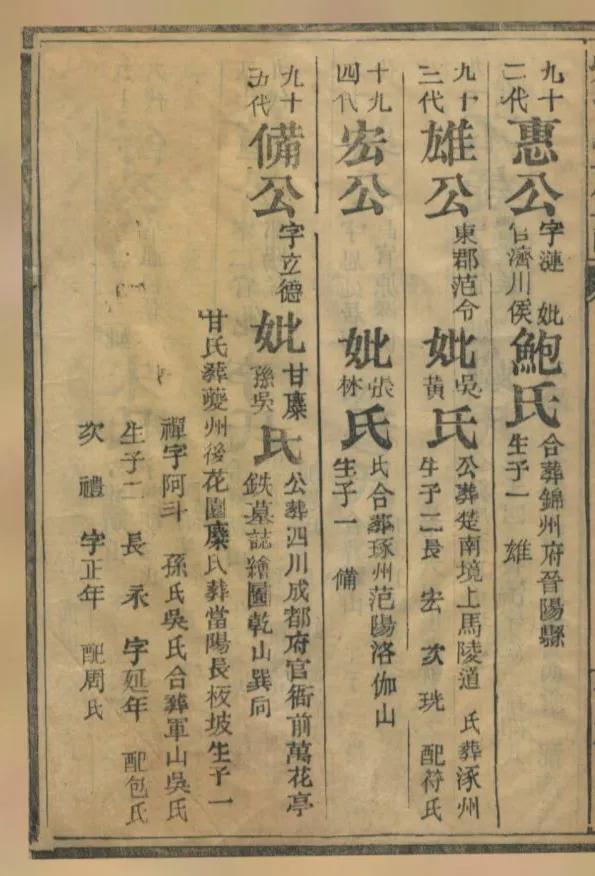 九十
二代
惠公
字漣 妣
官濟川侯
鮑氏
合葬錦州府晉陽縣
生子一 雄
九十
三代
雄公
東郡范令
妣
吳
黃
氏
公葬楚南境上馬陵道 氏葬涿州
生子二長 宏 次 珖 配符氏
十九
四代
宏公
妣
張
林
氏
氏合葬琢州范陽洛伽山
生子一 備
九十
五代
備公
字立德
妣
甘麋
孫吳
氏
公葬四川成都府官衙前萬花亭
鉄墓誌繪圖乾山巽向
甘氏葬夔州後花園麋氏葬當陽長板坡生子一
禪字阿斗 孫氏吳氏合葬軍山吳氏
生子二 長 永 字延年 配包氏
次 禮 字正年 配周氏